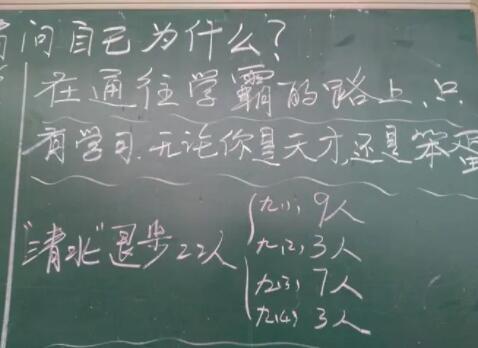 问自己为什么?
在通往学霸的路上,只
有学习.无论你是天才,还是笨蛋
"清北"退步22人
九(1) 9人
九(2) 3人
九(3) 7人
九(4) 3人